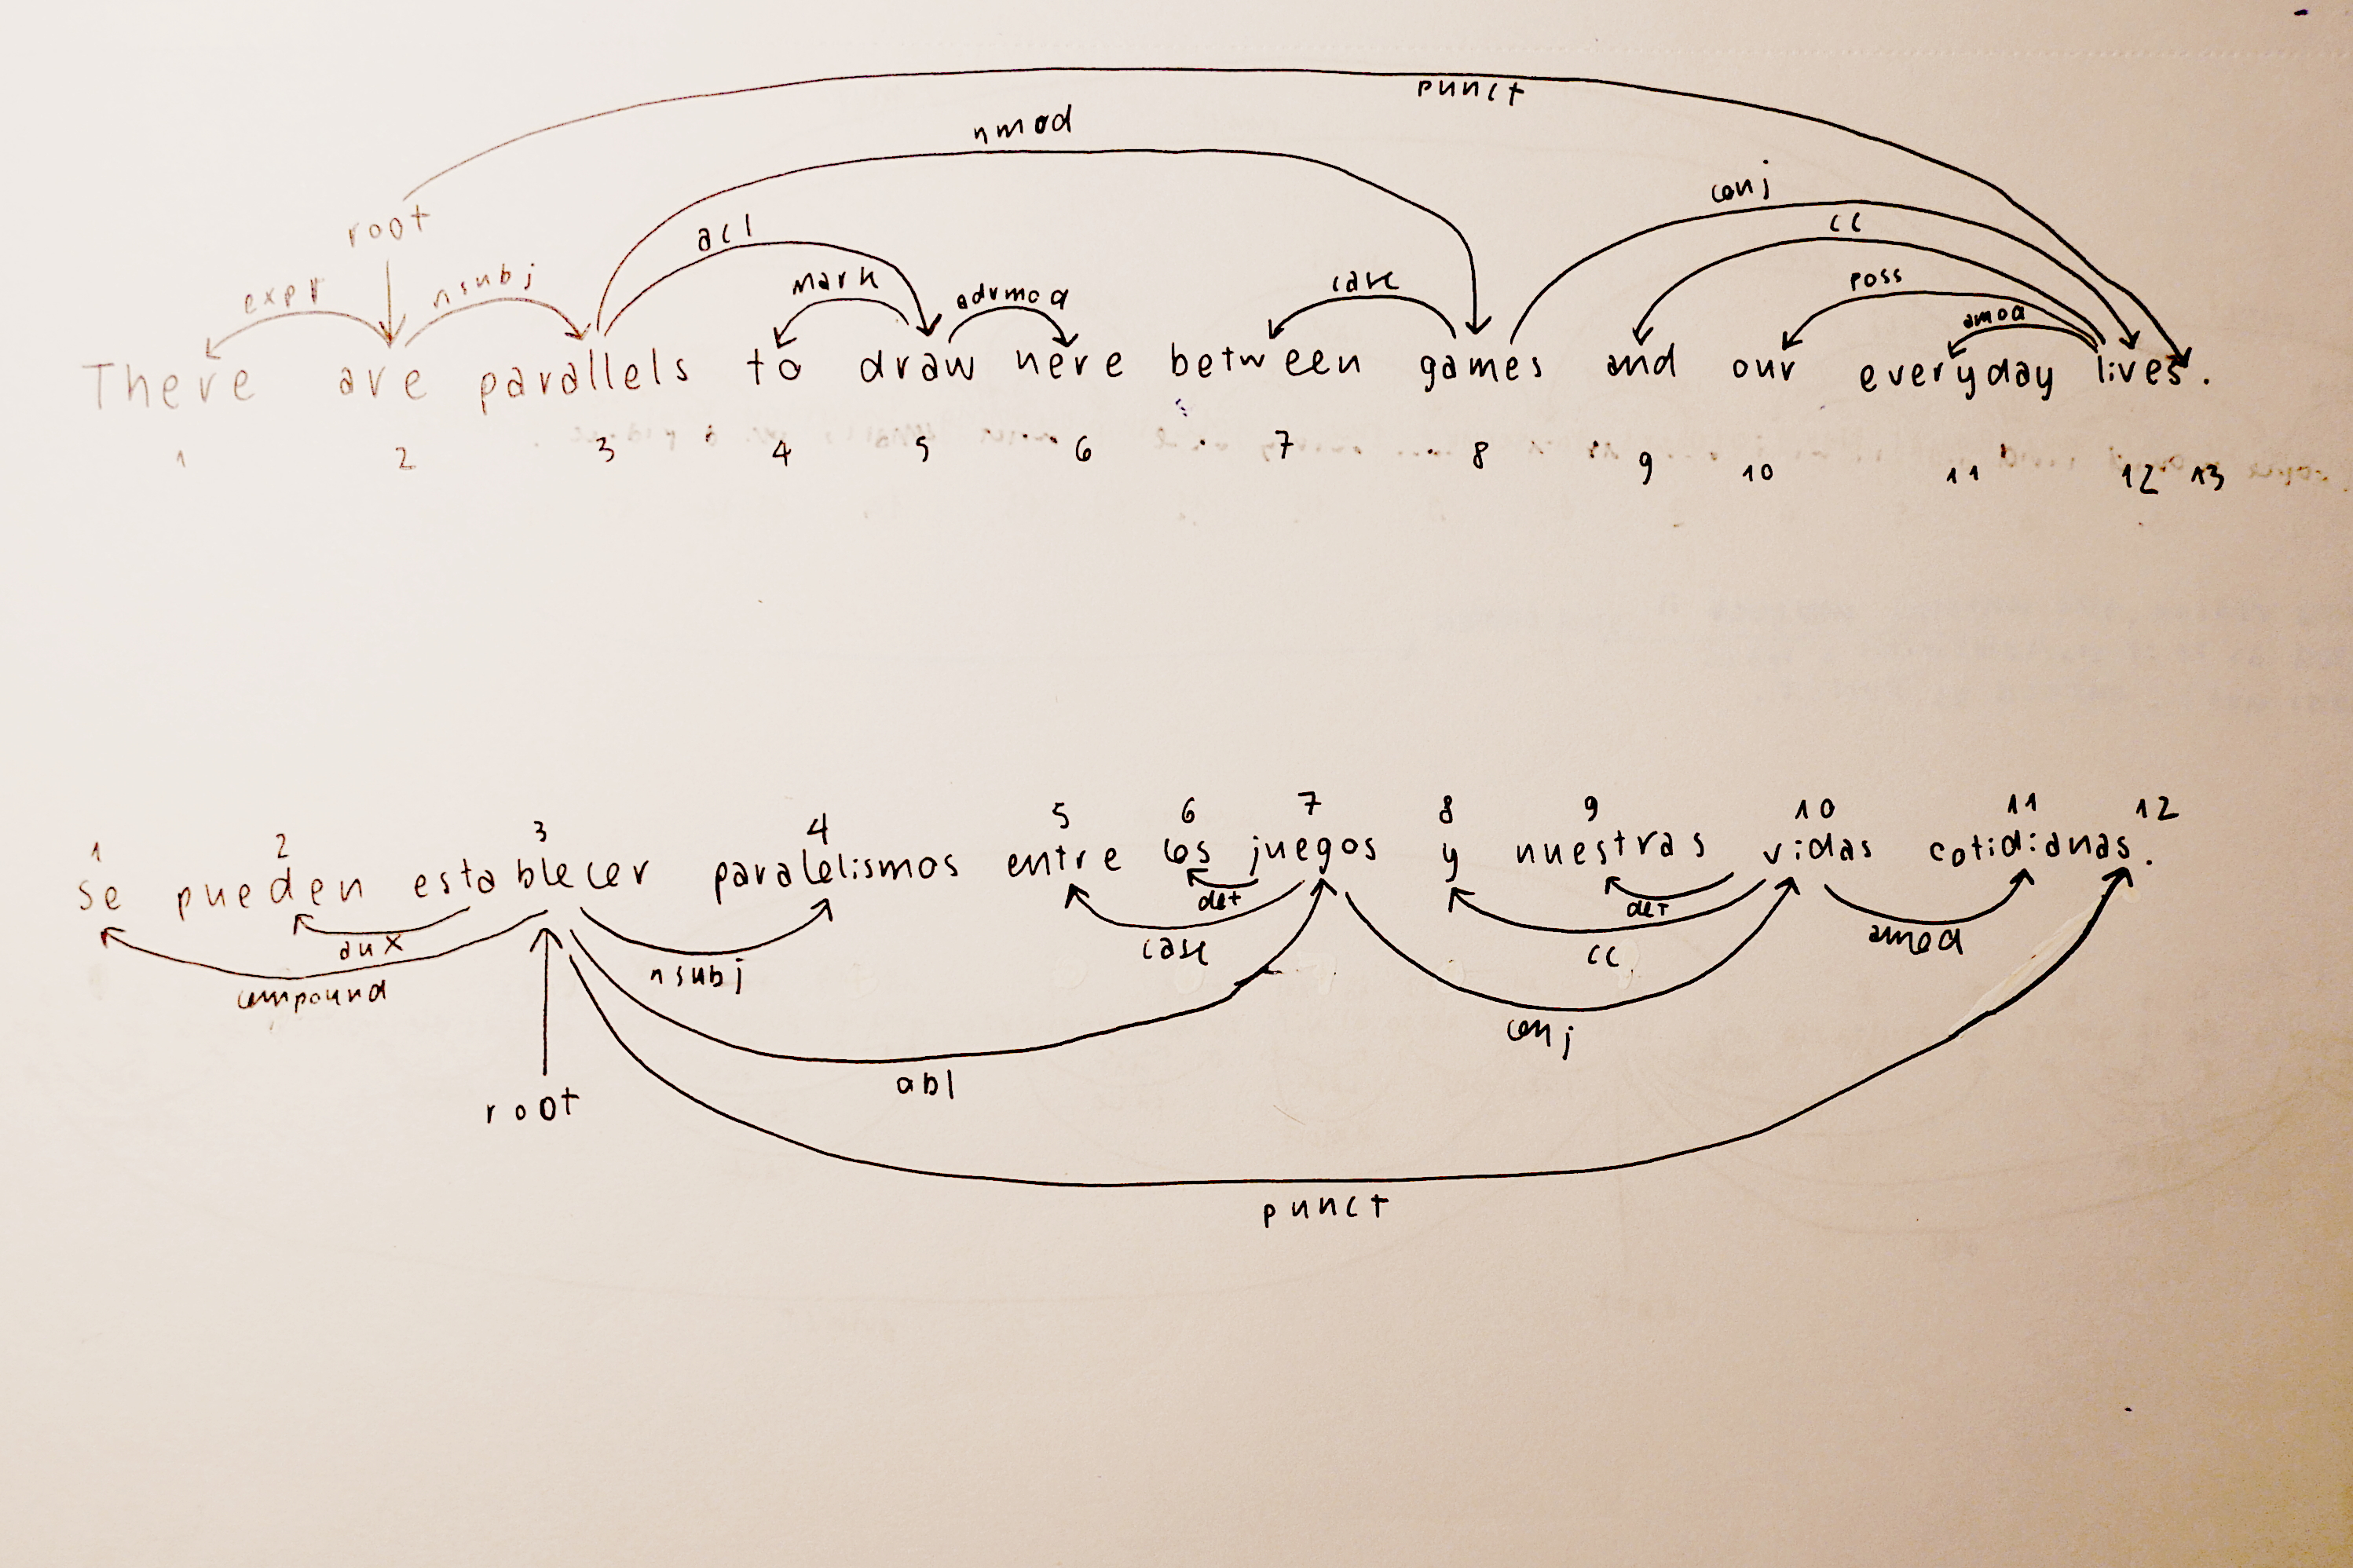 punct
nmod
conj
root acl cc
expr nsubj mark advmod case poss amod
There are parallels to draw here between games and our everyday lives.
1 2 3 4 5 6 7 8 9 10 11 12 13
1 2 3 4 5 6 7 8 9 10 11 12
Se pueden establecer paralelismos entre los juegos y nuestras vidas cotidianas.
det det
aux nsubj case cc amod
compound
conj
root abl
punct